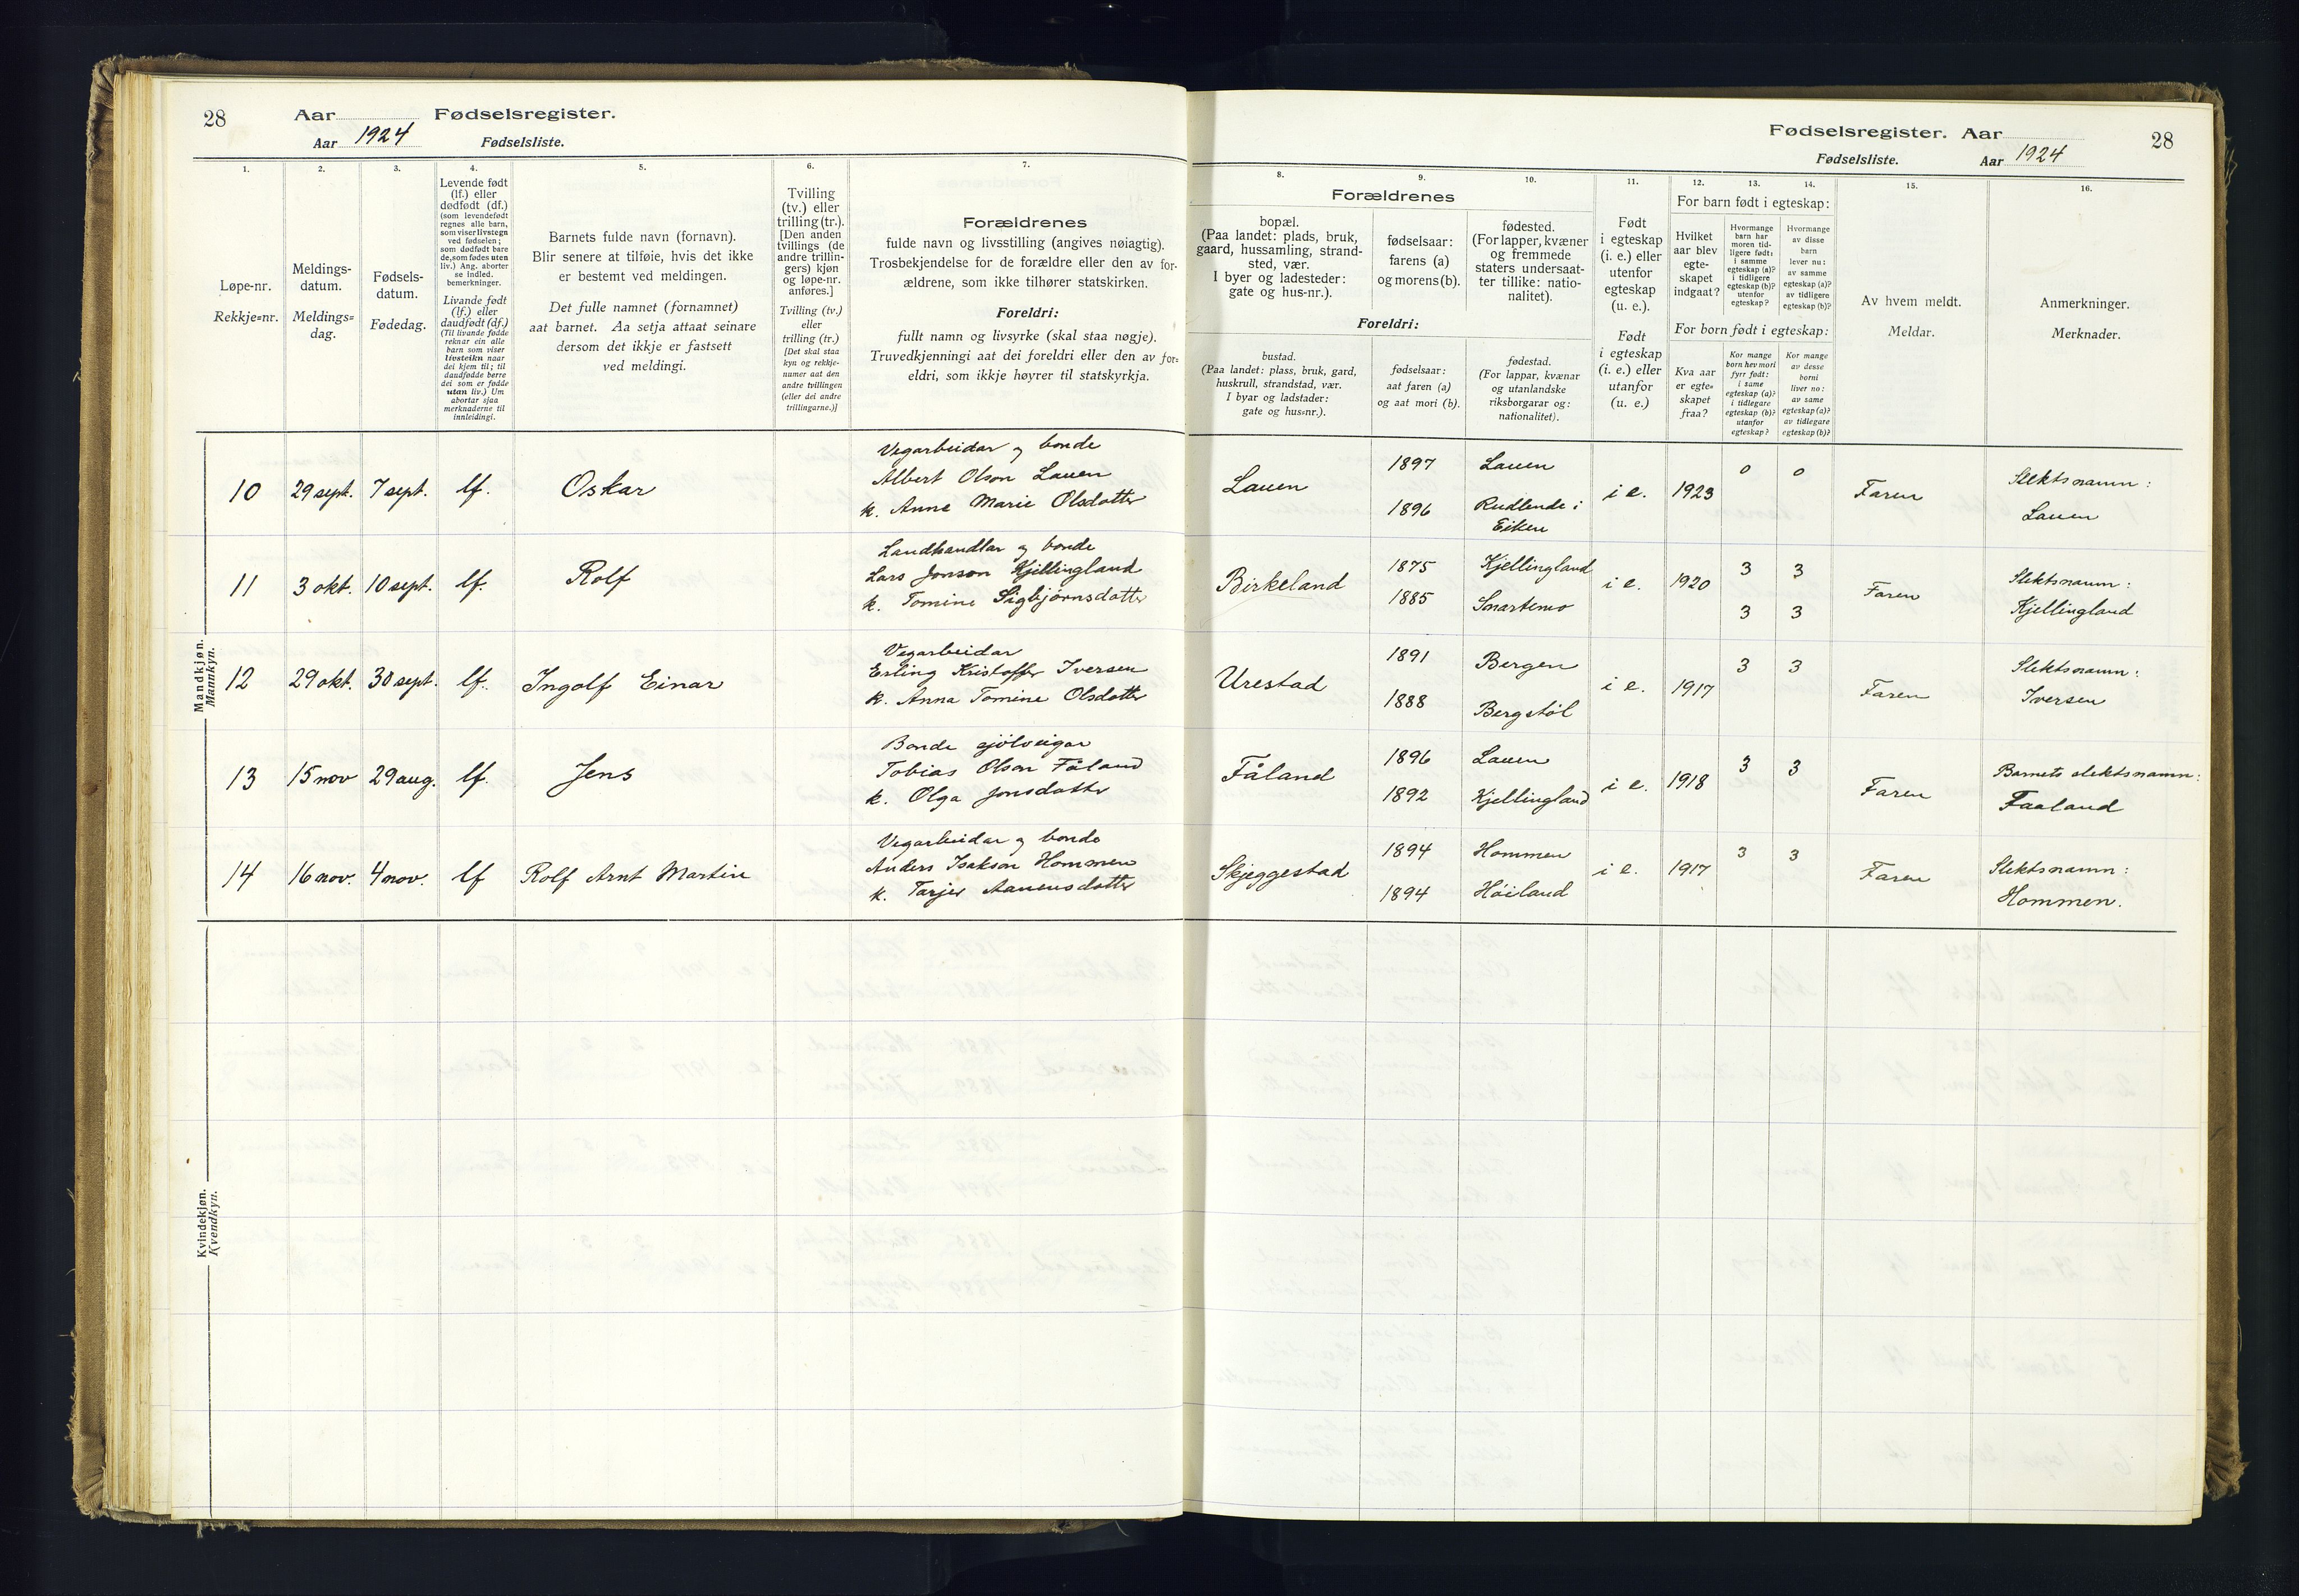 28
Aar
Fødselsregister.
Aar 1924
Fødselsliste.
1.
Løpe-nr.
Rekkje=nr.
2.
Meldings-
datum.
Meldings=
dag.
3.
Fødsels-
datum.
Fødedag.
4.
Levende født
(lf.) eller
dødfødt (df.)
(som levendefødt
regnes alle barn,
som viser livstegn
ved fødselen;
som dødfødt bare
de, som fødes uten
liv.) Ang. aborter
se indled.
bemerkninger.
Livande født
(lf.) eller
daudfødt (df.)
(Til livande fødde
reknar ein alle
barn som viser
livsteikn naar
dei kjem til; til
daudfødde berre
dei som er fødde
utan liv.) Um
abortar sjaa
merknaderne til
innleidingi.
5.
Barnets fulde navn (fornavn).
Blir senere at tilføie, hvis det ikke
er bestemt ved meldingen.
Det fulle namnet (fornamnet)
aat barnet. Aa setja attaat seinare
dersom det ikkje er fastsett
ved meldingi.
6.
Tvilling
(tv.) eller
trilling (tr.).
[Den anden
tvillings (de
andre trillin-
gers) kjøn
og løpe-nr.
anføres.]
Tvilling (tv.)
eller
trilling (tr.)
[Det skal staa
kyn og rekkje-
numer aat den
andre tvillingen
(eller dei andre
trillingarne.)]
7.
Forældrenes
fulde navn og livsstilling (angives nøiagtig).
Trosbekjendelse for de forældre eller den av for-
ældrene, som ikke tilhører statskirken.
Foreldri:
fullt namn og livsyrke (skal staa nøgje).
Truvedkjenningi aat dei foreldri eller den av for=
eldri, som ikkje høyrer til statskyrkja.
Mandkjøn.
Mannkyn.
10 29 sept. 7 sept. lf. Oskar
Vegarbeidar og bonde
Albert Olson Lauen
k. Anne Marie Olsdotter
11 3 okt. 10 sept. lf. Rolf
Landhandlar og bonde
Lars Jonson Kjellingland
k. Tomine Sigbjørnsdotter
12 29 okt. 30 sept. lf. Ingolf Einar
Vegarbeidar
Erling Kristoffer Iversen
k. Anna Tomine Olsdotter
13 15 nov 29 aug. lf. Jens
Bonde sjölveigar
Tobias Olson Fåland
k. Olga Jonsdotter
14 16 nov. 4 nov. lf Rolf Arnt Martin
Vegarbeidar og bonde
Anders Isakson Hommen
k. Tarjer Aanensdotter
Kvindekjøn.
Kvendkyn.
Fødselsregister. Aar
28
Fødselsliste.
Aar 1924
8.
Forældrenes
bopæl.
(Paa landet: plads, bruk,
gaard, hussamling, strand-
sted, vær.
I byer og ladesteder:
gate og hus-nr.).
9.
fødselsaar:
farens (a)
og morens (b).
10.
fødested.
(For lapper, kvæner
og fremmede
staters undersaat-
ter tillike: natio-
nalitet).
Foreldri:
bustad.
(Paa landet: plass, bruk, gard,
huskrull, strandstad, vær.
I byar og ladstader:
gate og hus=nr.).
fødselsaar:
aat faren (a)
og aat mori (b).
fødestad.
(For lappar, kvænar
og utanlandske
riksborgarar og:
nationalitet).
11.
Født
i egteskap
(i. e.) eller
utenfor
egteskap
(u. e.).
Født
i egteskap
(i. e.) eller
utanfor
(u. e.)
12.
13.
14.
For barn født i egteskap:
Hvilket
aar blev
egte-
skapet
indgaat?
Hvormange
barn har
moren tid-
ligere født:
i samme
egteskap (a)?
i tidligere
egteskap (b)?
utenfor
egteskap?
Hvormange
av disse
barn
lever nu:
av samme
egteskap (a)?
av tidligere
egteskap (b)?
For born født i egteskap:
Kva aar
er egte=
skapet
fraa?
Kor mange
born hev mori
fyrr født:
i same
egteskap (a)?
i tidlegare
egteskap (b)?
utanfor
egteskap?
Kor mange
av desse
borni
liver no:
av same
egteskap (a)?
av tidlegare
egteskap (b)?
15.
Av hvem meldt.
Meldar.
16.
Anmerkninger.
Merknader.
Lauen
1897 Lauen
1896 Rudlende i
Eiken
i e. 1923 0 0 Faren
Slektsnamn:
Lauen
Birkeland
1875 Kjellingland
1885 Snartemo
i e. 1920 3 3
3 3
Faren
Slektsnamn:
Kjellingland
Urestad
1891 Bergen
1888 Bergstøl
i e. 1917 3 3 Faren
Slektsnamn:
Iversen
Fåland
1896 Lauen
1892 Kjellingland
i e. 1918 3 3 Faren
Barnets slektsnamn:
Faaland
Skjeggestad
1894 Hommen
1894 Höiland
i e. 1917 3 3 Faren
Slektsnamn:
Hommen.